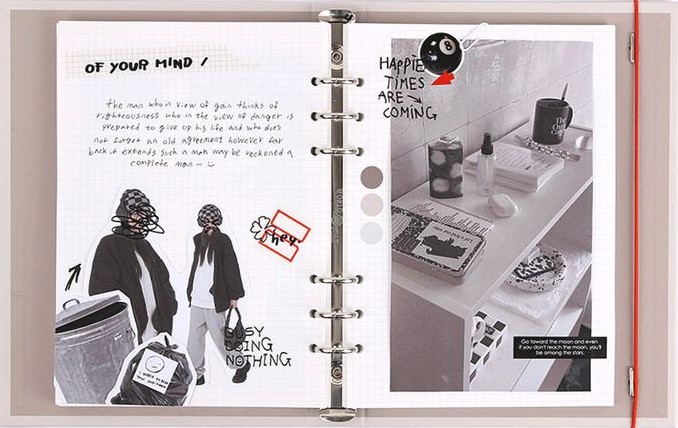 OF YOUR MIND /
the man who in view of gain thinks of
righteousness who in the view of danger is
prepared to give up his life and who does
not forget an old agreement however far
back it extends such a man may be reckoned a
complete man
hey.
BUSY
DOING
NOTHING
8
HAPPIE
TIMES
ARE
COMING
The
Go toward the moon and even
if you don't reach the moon, you'll
be among the stars.